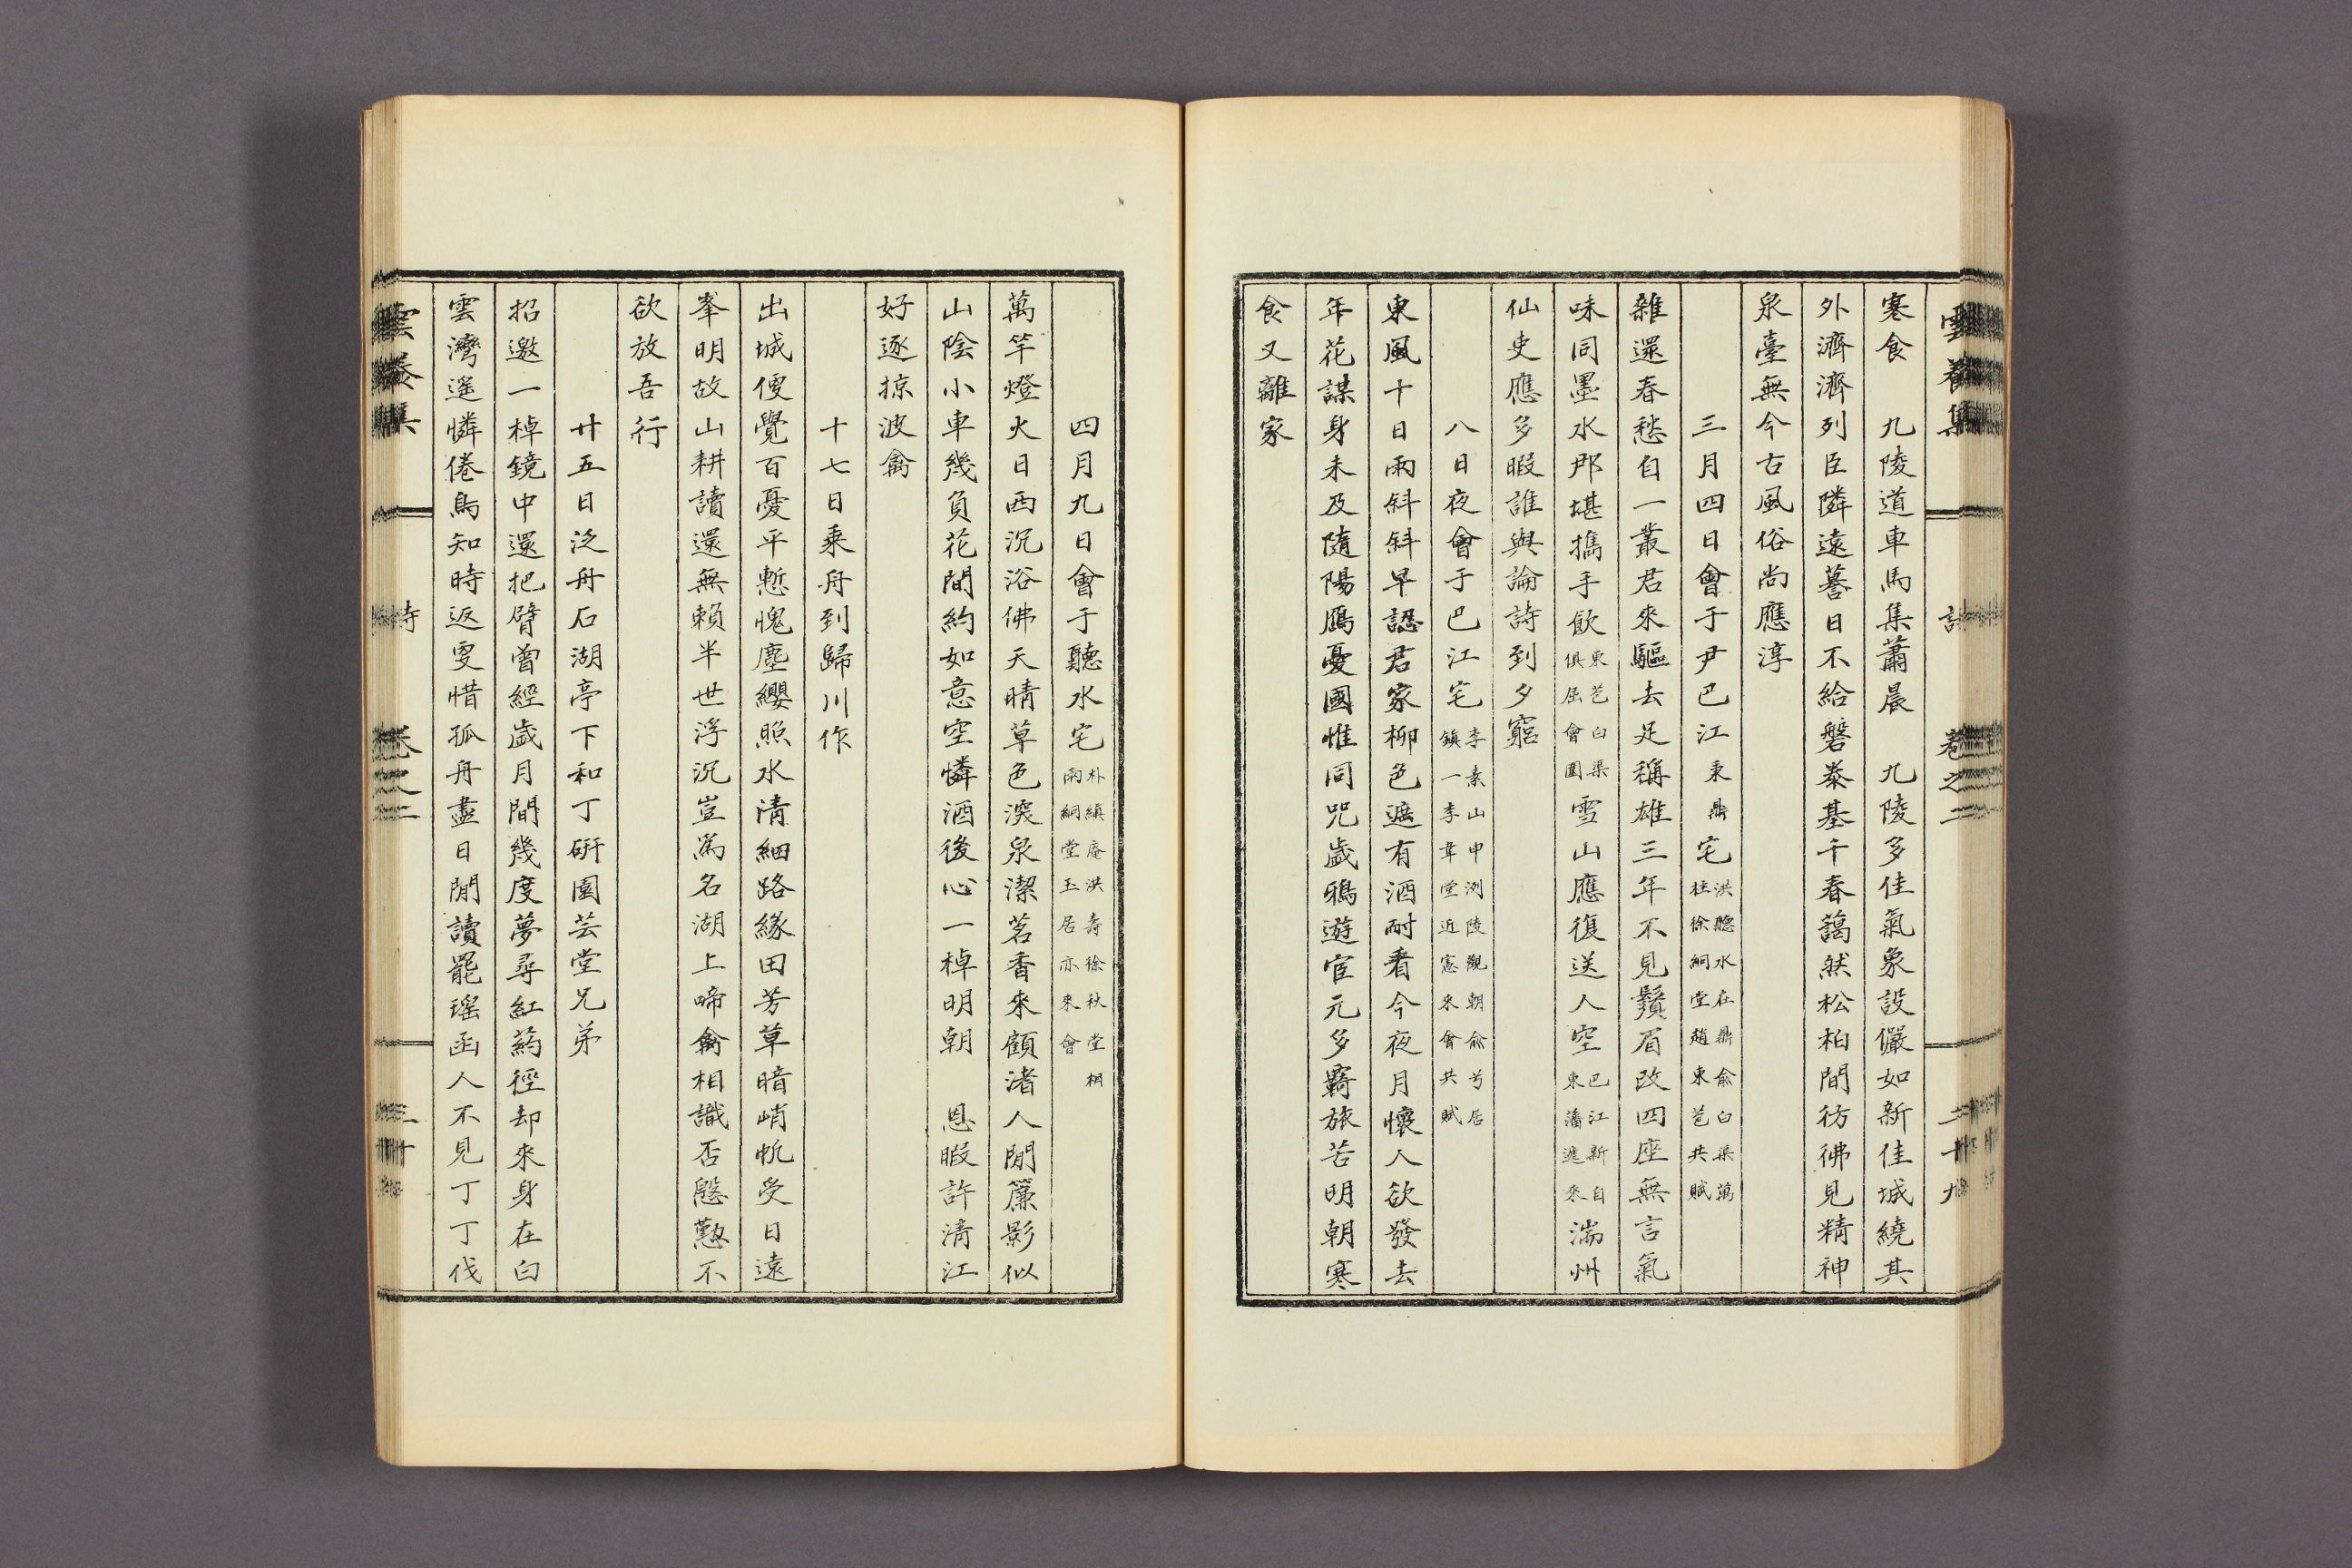 雲養集 詩 卷之二 二十九
寒食 九陵道車馬集蕭晨 九陵多佳氣象設儼如新佳城繞其
外濟濟列臣隣遠蓦日不給磐泰基千春藹然松柏間彷彿見精神
泉臺無今古風俗尚應淳
三月四日會于尹巴江秉鼎宅洪聽水在鼎俞白渠萬
柱徐絅堂趙東芭共賦
雜還春愁自一叢君來驅去足稱雄三年不見鬚眉改四座無言氣
味同墨水郡堪攜手飲東芭白渠
俱屈會圍雪山應復送人空巴江新自
東藩遞來湍州
仙吏應多暇誰與論詩到夕窮
八日夜會于巴江宅李素山申洌陵觀朝俞兮居
鎮一李韋堂近憲來會共賦
東風十日雨斜斜早認君家柳色遮有酒耐看今夜月懷人欲發去
年花謀身未及隨陽鴈憂國惟同咒歲鴉遊宦元多羇旅苦明朝寒
食又離家
四月九日會于聽水宅朴縝庵洪壽徐秋堂桐
雨絅堂玉居亦來會
萬竿燈火日西沉浴佛天晴草色深泉潔茗香來顧渚人閒簾影似
山陰小車幾負花間約如意空憐酒後心一棹明朝 恩暇許清江
好逐掠波禽
十七日乘舟到歸川作
出城便覺百憂平慙愧塵纓照水清細路緣田芳草暗峭帆受日遠
峯明故山耕讀還無賴半世浮沉豈爲名湖上啼禽相識否慇懃不
欲放吾行
廿五日泛舟石湖亭下和丁硏園芸堂兄弟
招邀一棹鏡中還把臂曾經歲月間幾度夢尋紅葯徑却來身在白
雲灣遙憐倦鳥知時返更惜孤舟盡日閒讀罷瑤函人不見丁丁伐
雲養集 詩 卷之二 三十